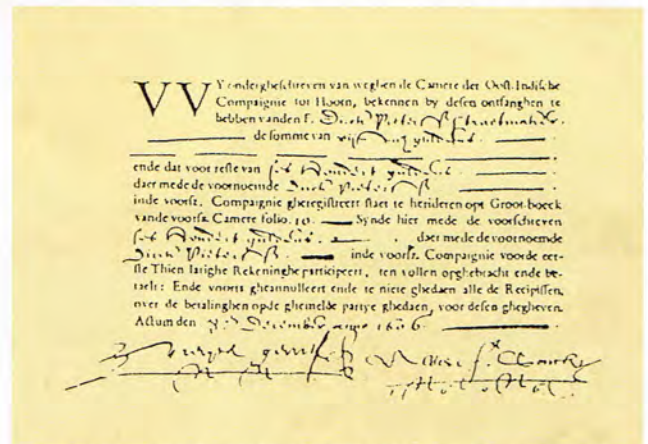 VVY ondergheschreven van weghen de Camere der Oost-Indische
Compaignie tot Hoorn, bekennen by desen ontfanghen te
hebben vanden E. Dirck Pieterss Straetmaker.
de somme van vijff guldens.
ende dat voor reste van ses hondert guldens
daer mede de voornoemde Dirck Pieterss
inde voorsz. Compaignie gheregistreert staet te herideren opt Groot-boeck
vande voorsz Camere folio. 10. Synde hier mede de voorschreven
ses hondert guldens. daer mede de voornoemde
Dirck Pieterss. inde voorsz. Compaignie voorde eer-
ste Thien Iarighe Rekeninghe participeert, ten vollen opghebracht ende be-
taelt: Ende voorts gheannulleert ende te niete ghedaen alle de Recipissen,
over de betalinghen opde ghemelde partye ghedaen, voor desen ghegheven.
Actum den December anno 1606